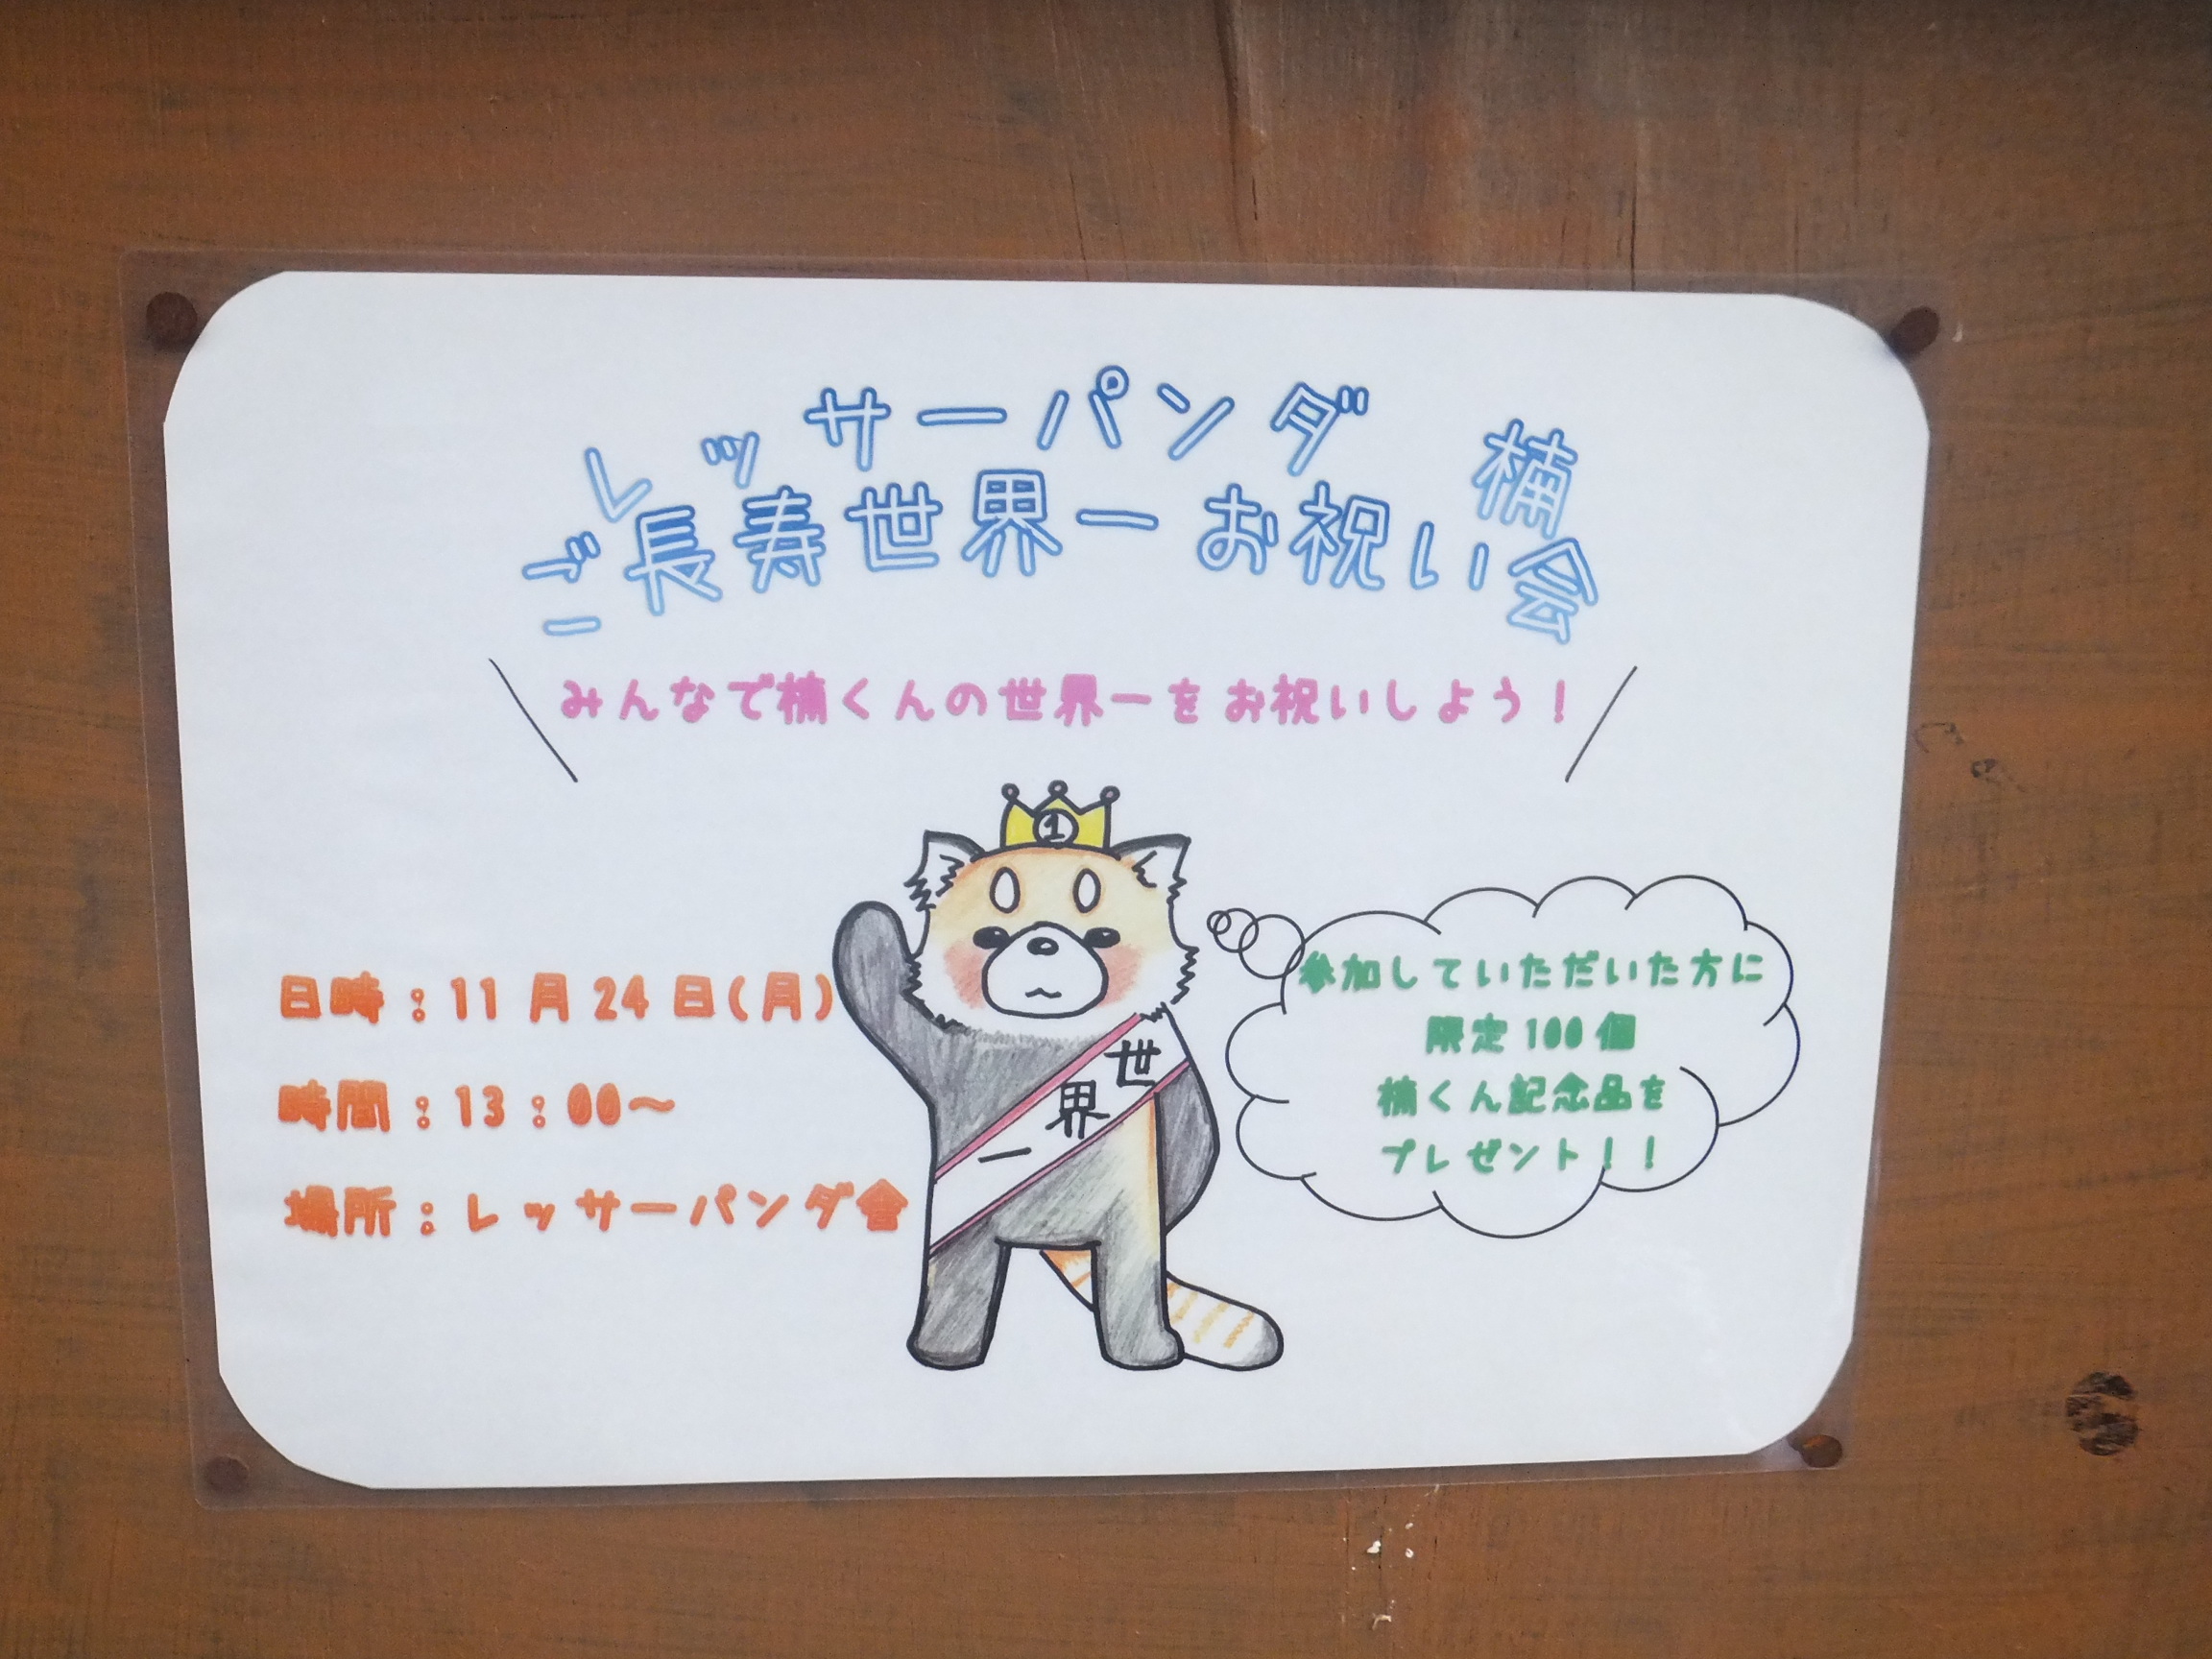 レッサーパンダ 楠
ご長寿世界一お祝い会
みんなで楠くんの世界一をお祝いしよう！
1
日時：11月24日(月)
時間：13：00～
場所：レッサーパンダ舎
世界一
参加していただいた方に
限定100個
楠くん記念品を
プレゼント！！